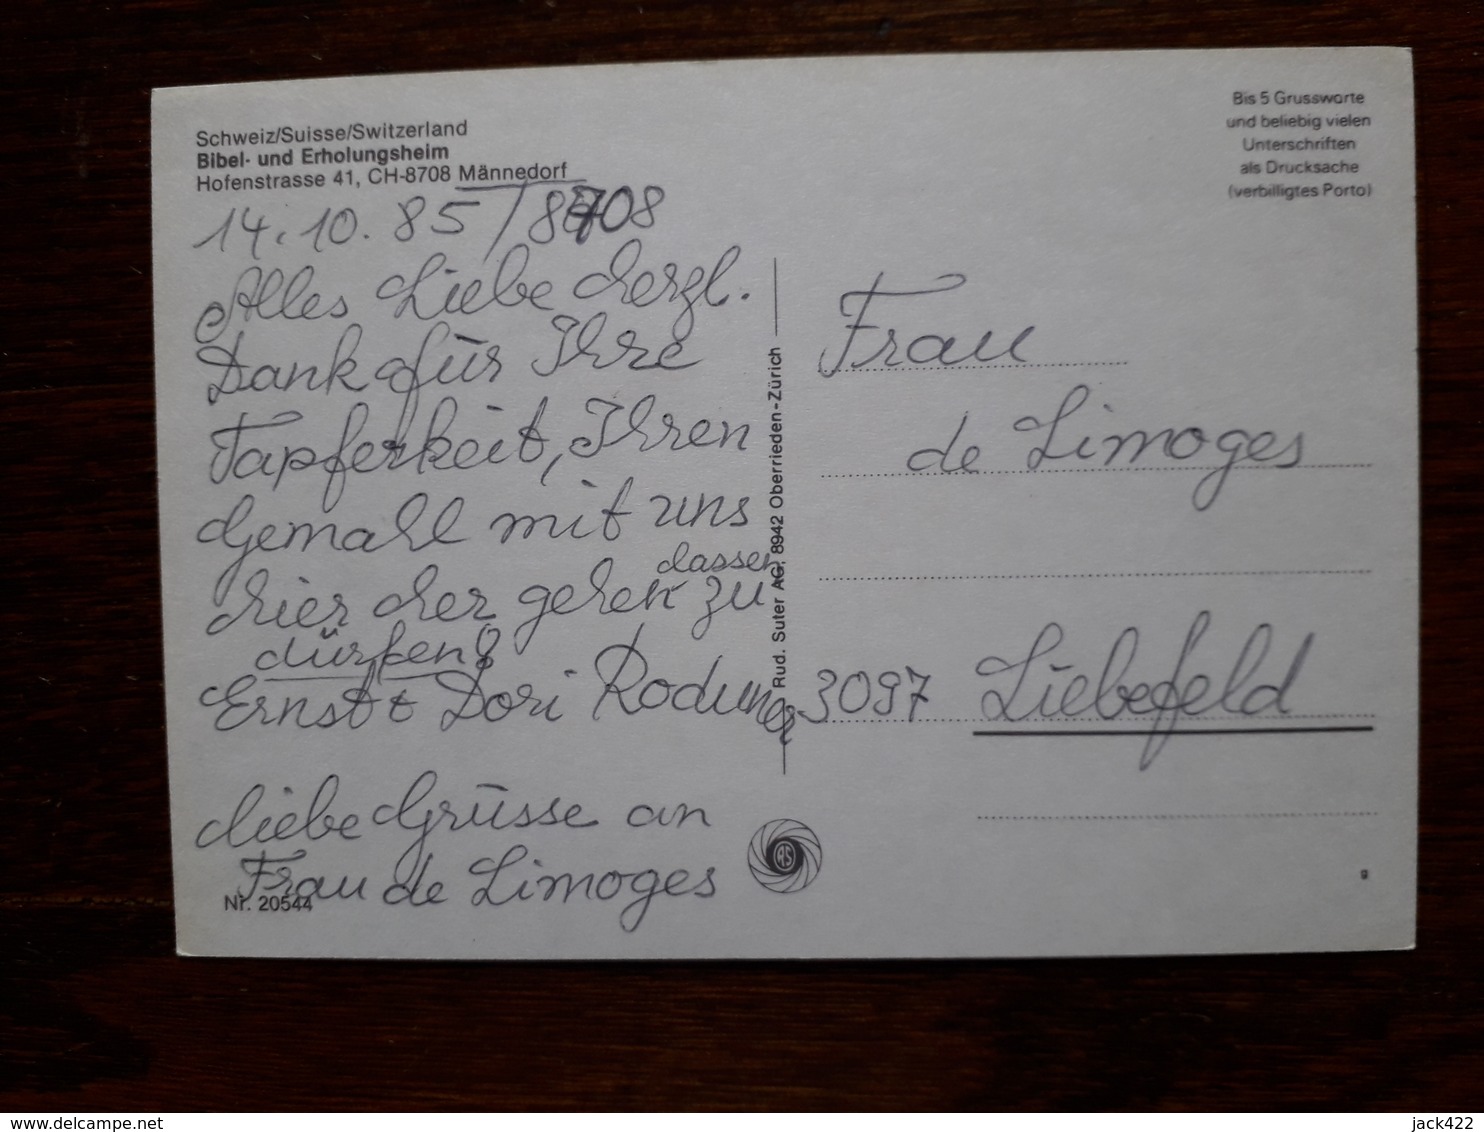 Schweiz/Suisse/Switzerland
Bibel- und Erholungsheim
Hofenstrasse 41, CH-8708 Männedorf
14.10.85 / 8708
Alles Liebe herzl.
Dank für Ihre
Tapferkeit, Ihren
Gemahl mit uns
hier her gehen zu
lassen
dürfen!
Ernst + Dori Roduner
Liebe Grüsse an
Frau de Limoges
Nr. 20544
Rud. Suter AG, 8942 Oberrieden-Zürich
RS
Bis 5 Grussworte
und beliebig vielen
Unterschriften
als Drucksache
(verbilligtes Porto)
Frau
de Limoges
3097 Liebefeld
9
delcampe.net
jack422